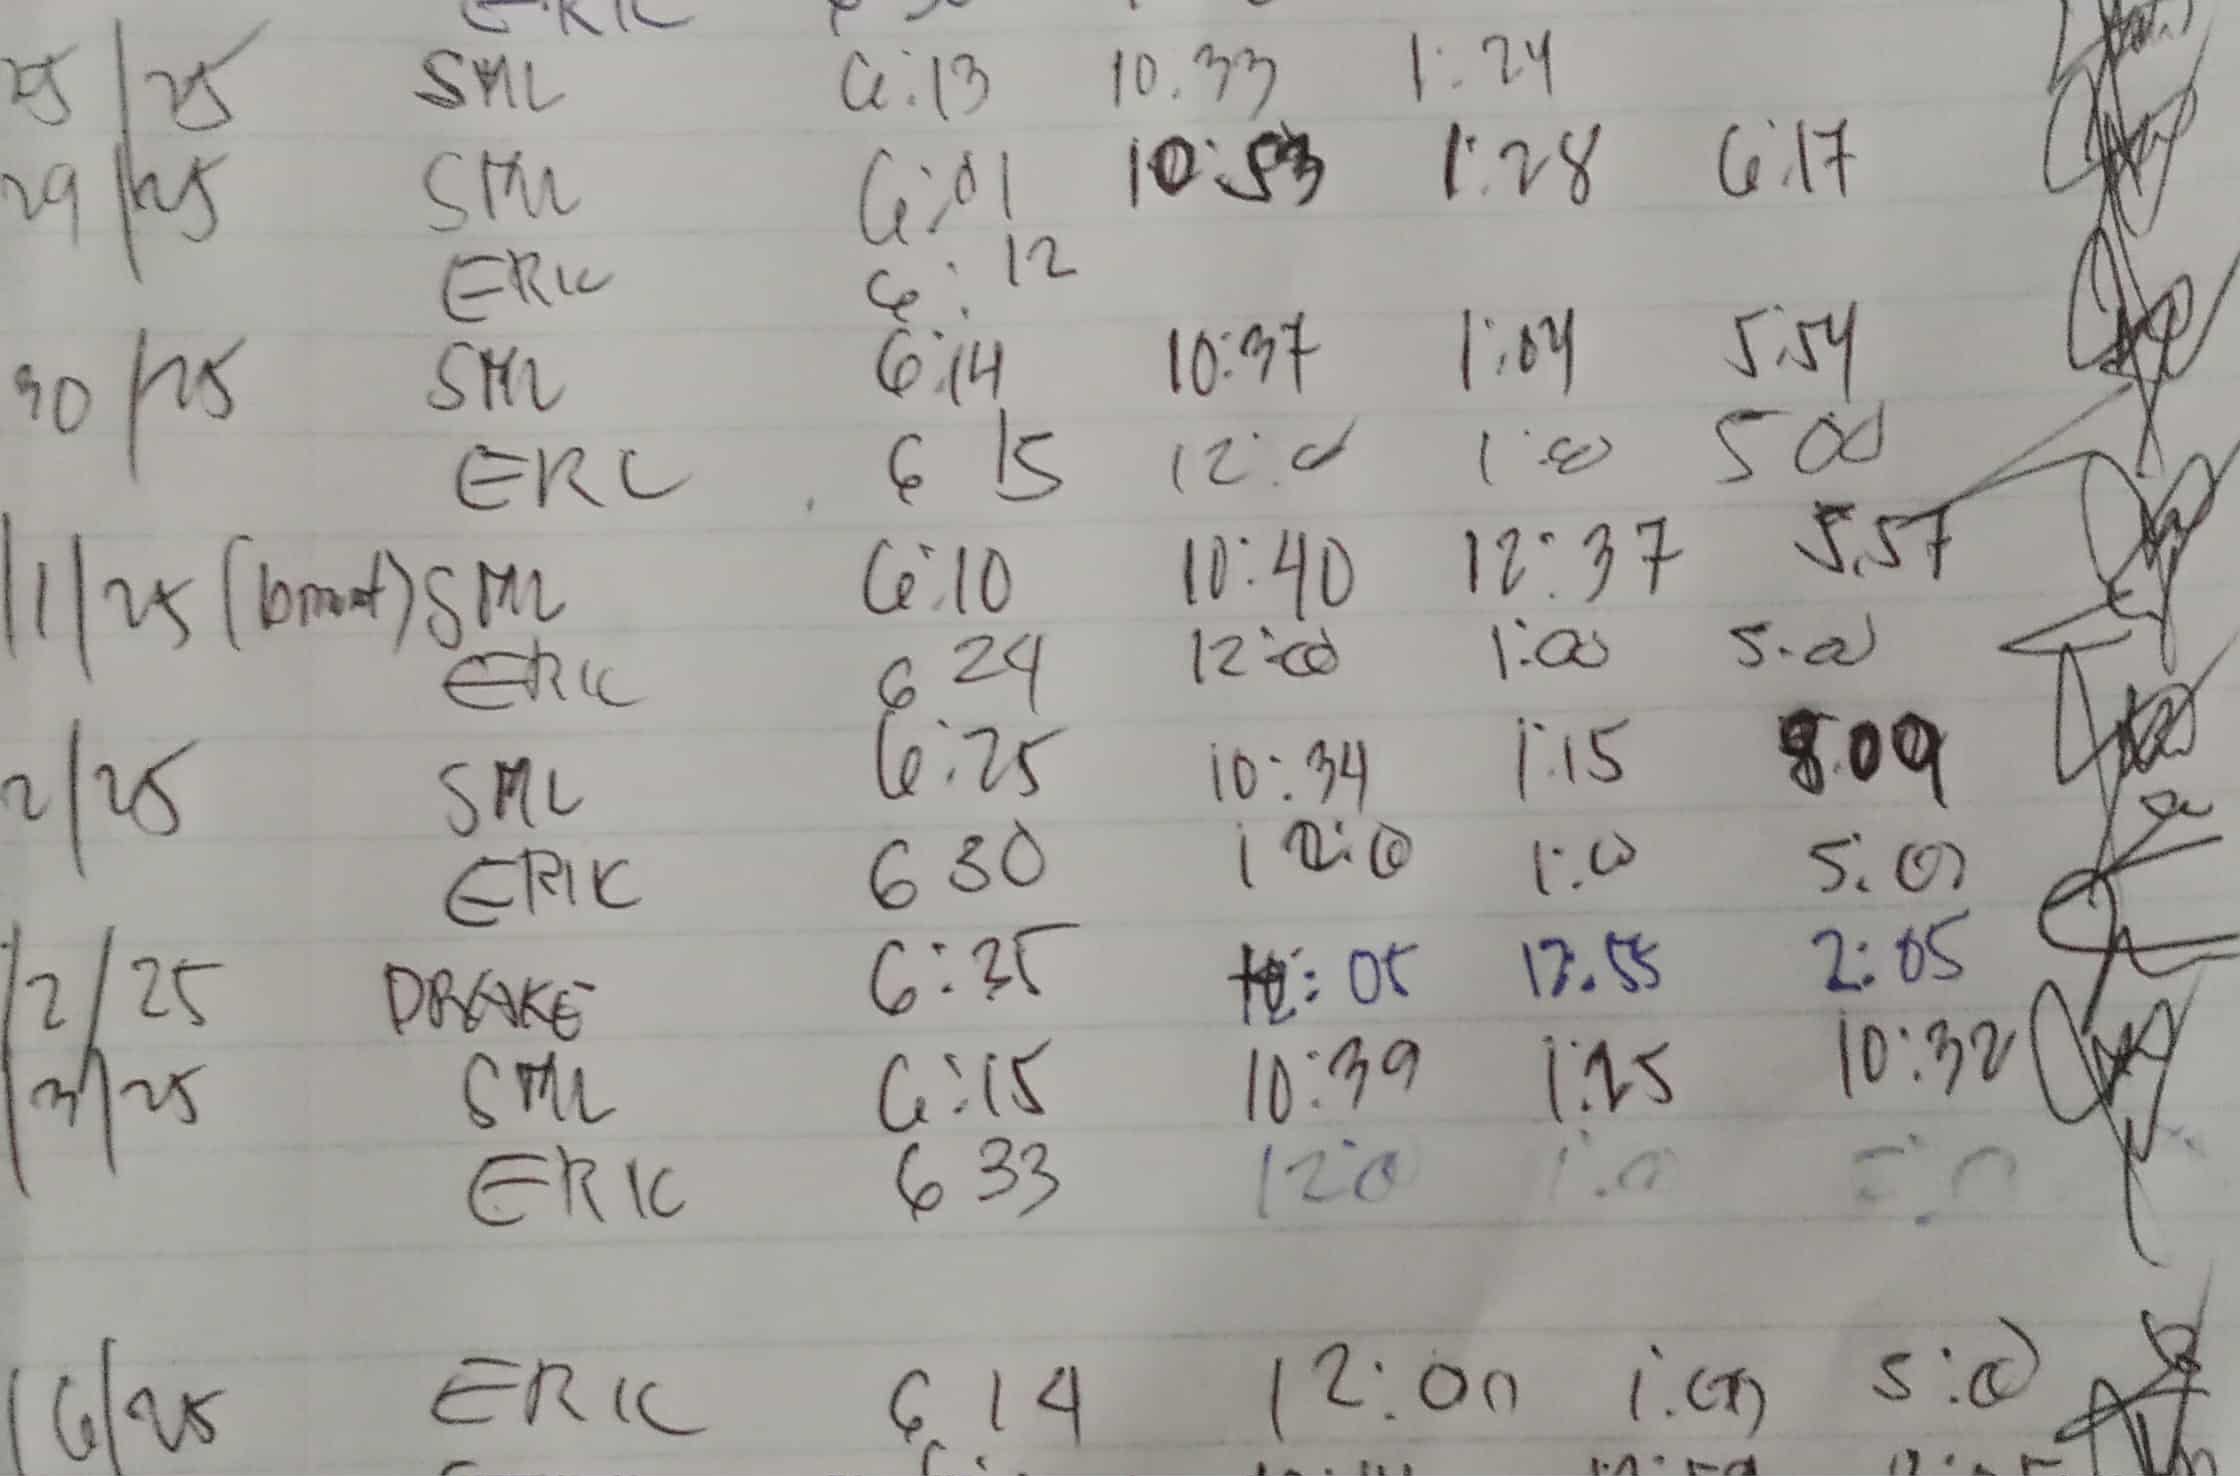 ERIC
25/25 SML 6:13 10.33 1:24
29/25 SML 6:01 10:53 1:28 6:17
ERIC 6:12
30/25 SML 6:14 10:37 1:04 5:54
ERIC 6 15 12:00 1:00 5 00
/1/25 SML 6:10 10:40 12:37 5.57
ERIC 6 24 12:00 1:00 5:00
2/25 SML 6:25 10:34 1:15 8:09
ERIC 6 30 12:00 1:00 5:00
/2/25 DRAKE 6:35 12:05 12.55 2:05
/3/25 SML 6:15 10:39 1:25 10:32
ERIC 6 33 12:0 1:0
/6/25 ERIC 6 14 12:00 1:00 5:00